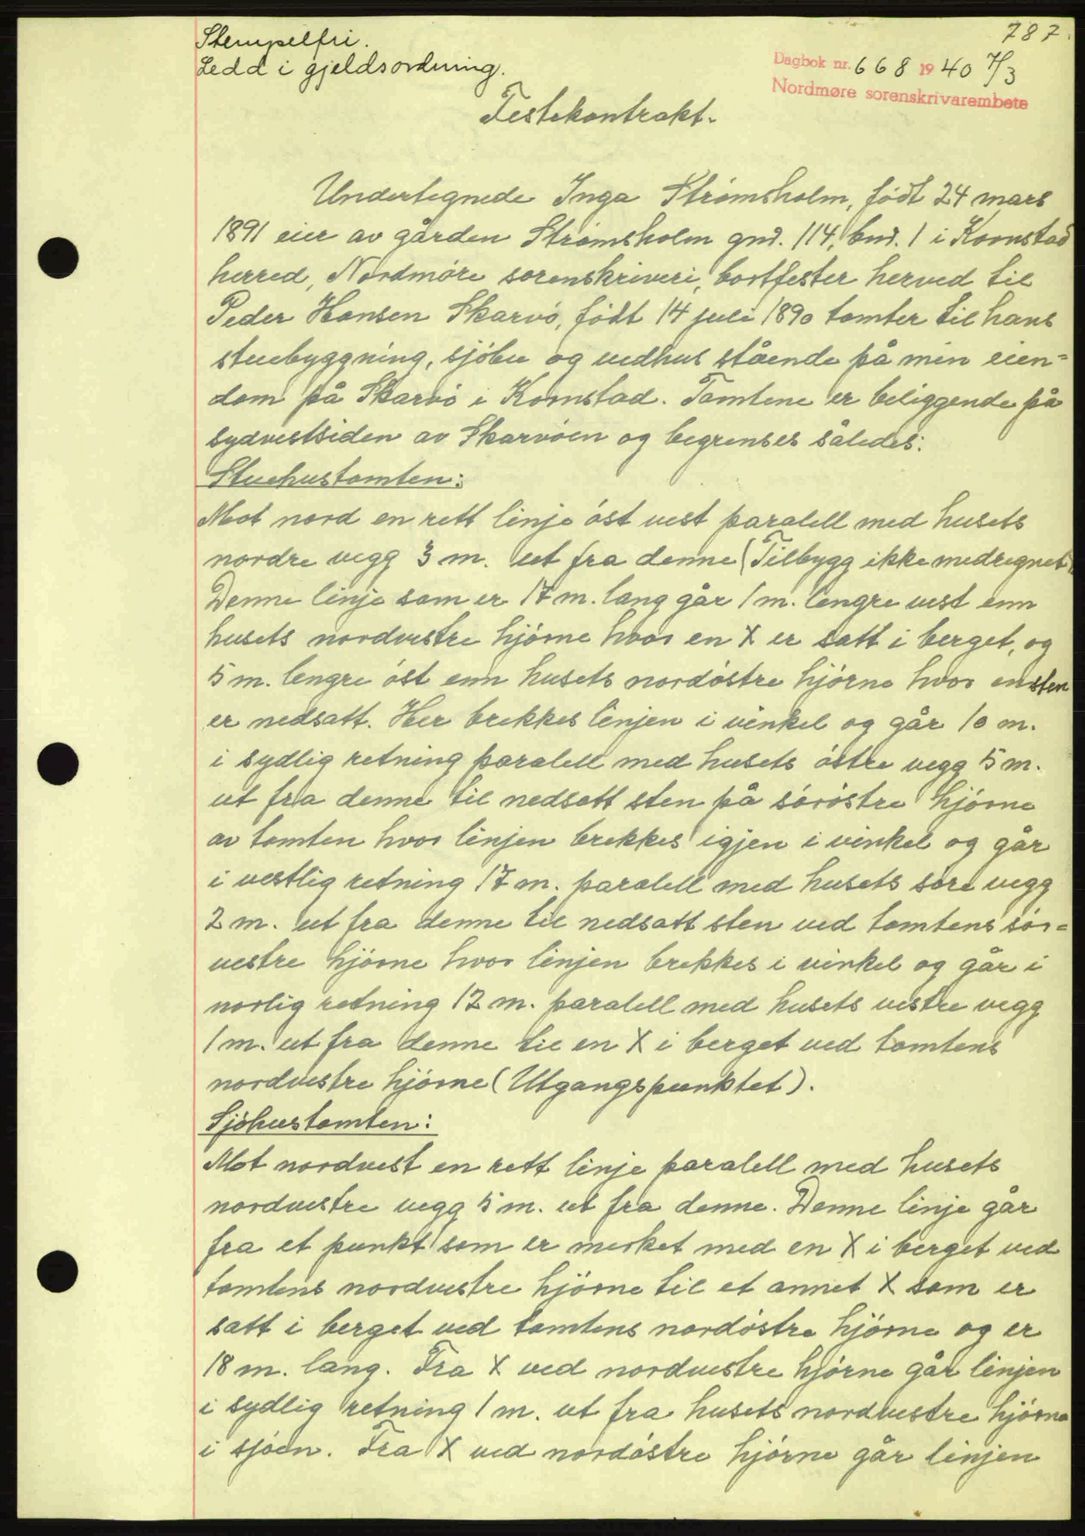 787.
Stempelfri.
Ledd i gjeldsordning.
Dagbok nr. 668 1940 7/3
Nordmøre sorenskrivarembete
Festekontrakt.
Undertegnede Inga Strømsholm, født 24 mars
1891 eier av gården Strømsholm gnr. 114, bnr. 1 i Kornstad
herred, Nordmøre sorenskriveri, bortfester herved til
Peder Hansen Skarvö, födt 14 juli 1890 tomter til hans
stuebyggning, sjöbu og vedhus stående på min eien=
dom på Skarvö i Kornstad. Tomtene er beliggende på
sydvestsiden av Skarvöen og begrenses således:
Stuehustomten:
Mot nord en rett linje öst vest paralell med husets
nordre vegg 3 m. ut fra denne (Tilbygg ikke medregnet)
Denne linje som er 17 m. lang går 1 m. lengre vest enn
husets nordvestre hjörne hvor en X er satt i berget, og
5 m. lengre öst enn husets nordöstre hjörne hvor en sten
er nedsatt. Her brekkes linjen i vinkel og går 10 m.
i sydlig retning paralell med husets östre vegg 5 m.
ut fra denne til nedsatt sten på söröstre hjörne
av tomten hvor linjen brekkes igjen i vinkel og går
i vestlig retning 17 m. paralell med husets söre vegg
2 m. ut fra denne til nedsatt sten ved tomtens sör=
vestre hjörne hvor linjen brekkes i vinkel og går i
norlig retning 12 m. paralell med husets vestre vegg
1 m. ut fra denne til en X i berget ved tomtens
nordvestre hjörne (Utgangspunktet).
Sjöhustomten:
Mot nordvest en rett linje paralell med husets
nordvestre vegg 5 m. ut fra denne. Denne linje går
fra et punkt som er merket med en X i berget ved
tomtens nordvestre hjörne til et annet X som er
satt i berget ved tomtens nordöstre hjörne og er
18 m. lang. Fra X ved nordvestre hjörne går linjen
i sydlig retning 1 m. ut fra husets nordvestre hjörne
i sjöen. Fra X ved nordöstre hjörne går linjen